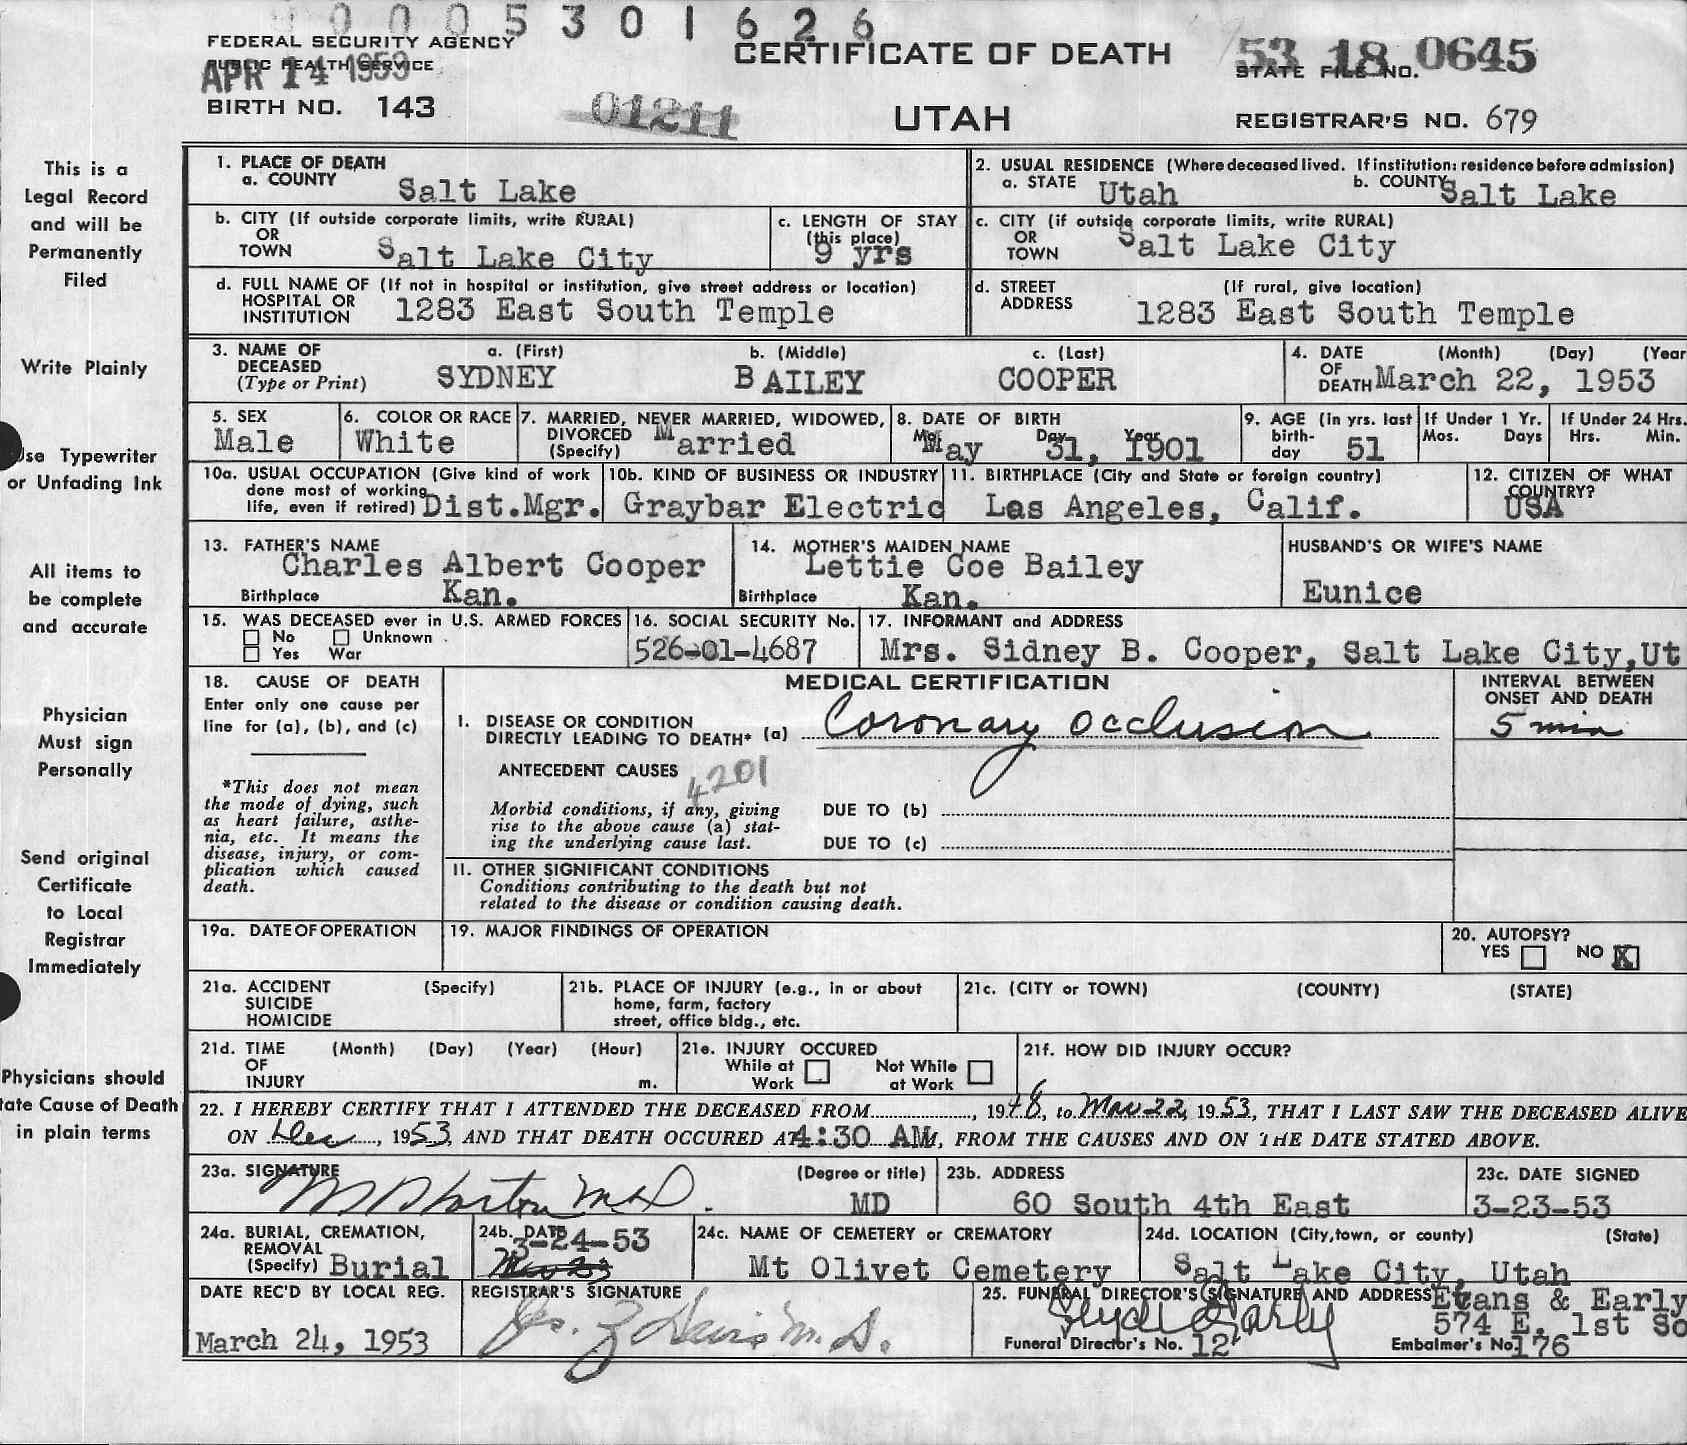 0005301626
FEDERAL SECURITY AGENCY
PUBLIC HEALTH SERVICE
APR 14 1953
BIRTH NO. 143
01211
CERTIFICATE OF DEATH
UTAH
53 18 0645
STATE FILE NO.
REGISTRAR'S NO. 679
This is a
Legal Record
and will be
Permanently
Filed
Write Plainly
Use Typewriter
or Unfading Ink
All items to
be complete
and accurate
Physician
Must sign
Personally
Send original
Certificate
to Local
Registrar
Immediately
Physicians should
tate Cause of Death
in plain terms
1. PLACE OF DEATH
a. COUNTY Salt Lake
2. USUAL RESIDENCE (Where deceased lived. If institution: residence before admission)
a. STATE Utah b. COUNTY Salt Lake
b. CITY (If outside corporate limits, write RURAL)
OR
TOWN Salt Lake City
c. LENGTH OF STAY
(this place)
9 yrs
c. CITY (if outside corporate limits, write RURAL)
OR
TOWN Salt Lake City
d. FULL NAME OF (If not in hospital or institution, give street address or location)
HOSPITAL OR
INSTITUTION 1283 East South Temple
d. STREET (If rural, give location)
ADDRESS 1283 East South Temple
3. NAME OF DECEASED (Type or Print)
a. (First) b. (Middle) c. (Last)
SYDNEY BAILEY COOPER
4. DATE OF DEATH (Month) (Day) (Year
March 22, 1953
5. SEX
Male
6. COLOR OR RACE
White
7. MARRIED, NEVER MARRIED, WIDOWED,
DIVORCED
(Specify) Married
8. DATE OF BIRTH
Mo. Day Year
May 31, 1901
9. AGE (in yrs. last
birth-
day 51
If Under 1 Yr.
Mos. Days
If Under 24 Hrs.
Hrs. Min.
10a. USUAL OCCUPATION (Give kind of work
done most of working
life, even if retired) Dist.Mgr.
10b. KIND OF BUSINESS OR INDUSTRY
Graybar Electric
11. BIRTHPLACE (City and State or foreign country)
Los Angeles, Calif.
12. CITIZEN OF WHAT
COUNTRY?
USA
13. FATHER'S NAME
Charles Albert Cooper
Birthplace Kan.
14. MOTHER'S MAIDEN NAME
Lettie Coe Bailey
Birthplace Kan.
HUSBAND'S OR WIFE'S NAME
Eunice
15. WAS DECEASED ever in U.S. ARMED FORCES
No Unknown
Yes War
16. SOCIAL SECURITY No.
526-01-4687
17. INFORMANT and ADDRESS
Mrs. Sidney B. Cooper, Salt Lake City,Ut
18. CAUSE OF DEATH
Enter only one cause per
line for (a), (b), and (c)
*This does not mean
the mode of dying, such
as heart failure, asthe-
nia, etc. It means the
disease, injury, or com-
plication which caused
death.
MEDICAL CERTIFICATION
INTERVAL BETWEEN
ONSET AND DEATH
I. DISEASE OR CONDITION
DIRECTLY LEADING TO DEATH* (a) Coronary Occlusion
5 min
ANTECEDENT CAUSES
4201
Morbid conditions, if any, giving
rise to the above cause (a) stat-
ing the underlying cause last.
DUE TO (b)
DUE TO (c)
11. OTHER SIGNIFICANT CONDITIONS
Conditions contributing to the death but not
related to the disease or condition causing death.
19a. DATE OF OPERATION
19. MAJOR FINDINGS OF OPERATION
20. AUTOPSY?
YES NO X
21a. ACCIDENT (Specify)
SUICIDE
HOMICIDE
21b. PLACE OF INJURY (e.g., in or about
home, farm, factory
street, office bldg., etc.
21c. (CITY or TOWN) (COUNTY) (STATE)
21d. TIME (Month) (Day) (Year) (Hour)
OF
INJURY m.
21e. INJURY OCCURED
While at Work Not While at Work
21f. HOW DID INJURY OCCUR?
22. I HEREBY CERTIFY THAT I ATTENDED THE DECEASED FROM, 1948, to Mar 22, 1953, THAT I LAST SAW THE DECEASED ALIVE
ON Dec, 1953, AND THAT DEATH OCCURED AT 4:30 AM, FROM THE CAUSES AND ON THE DATE STATED ABOVE.
23a. SIGNATURE (Degree or title)
M.D. MD
23b. ADDRESS
60 South 4th East
23c. DATE SIGNED
3-23-53
24a. BURIAL, CREMATION,
REMOVAL
(Specify) Burial
24b. DATE
3-24-53
24c. NAME OF CEMETERY or CREMATORY
Mt Olivet Cemetery
24d. LOCATION (City,town, or county) (State)
Salt Lake City, Utah
DATE REC'D BY LOCAL REG.
March 24, 1953
REGISTRAR'S SIGNATURE
M.D.
25. FUNERAL DIRECTOR'S SIGNATURE AND ADDRESS Evans & Early
574 E. 1st So
Funeral Director's No. 12
Embalmer's No. 176